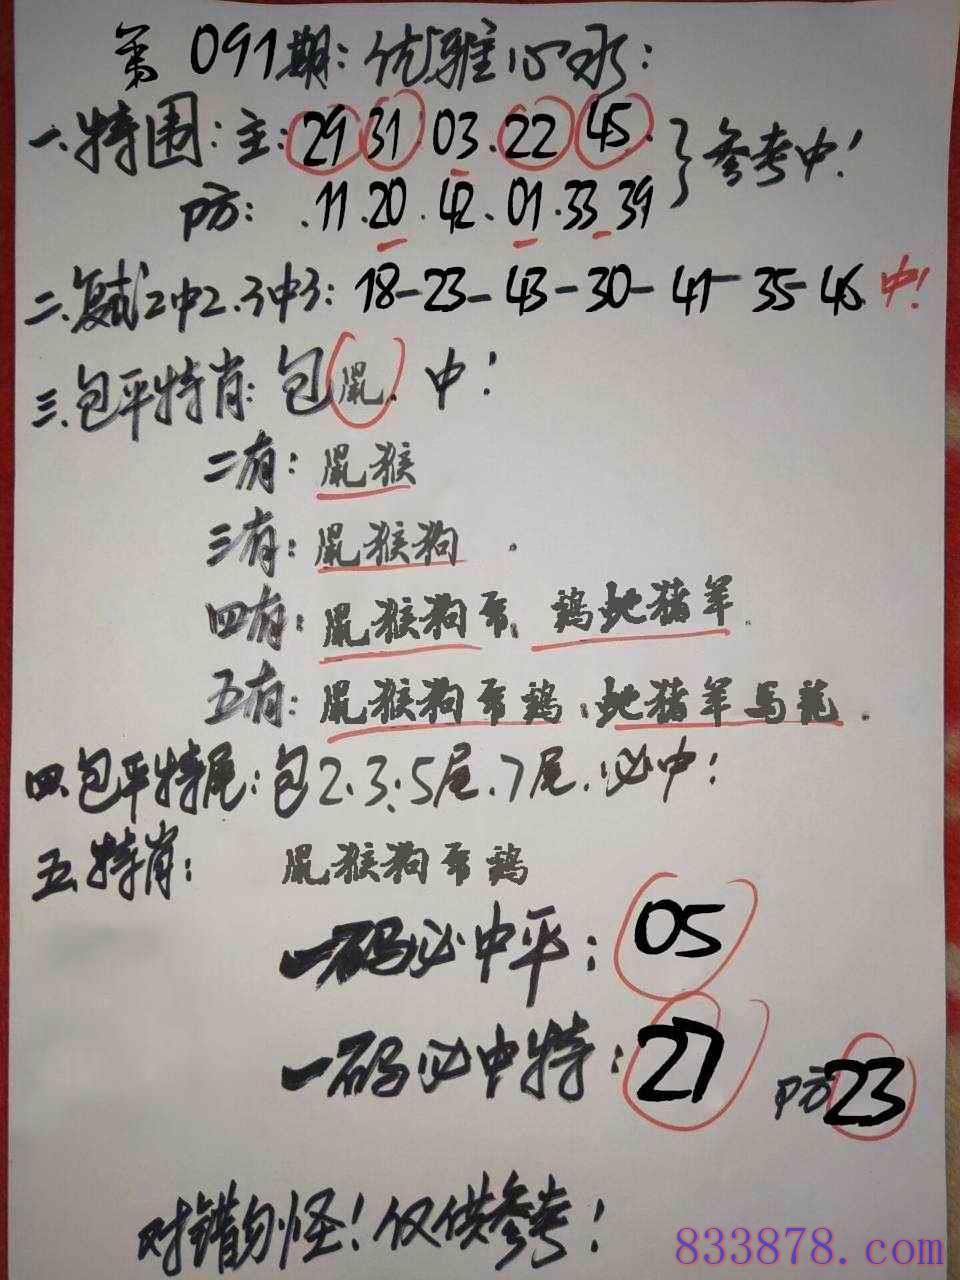 第091期:优雅心水:
一.特围:主:29 31.03.22.45.
防:.11.20.42.01.33 39
}参考中!
二.复式2中2.3中3:18-23-43-30-41-35-46.中!
三.包平特肖:包鼠.中!
二有:鼠猴
三有:鼠猴狗.
四有:鼠猴狗 鸡蛇猪羊.
五有:鼠猴狗 鸡.蛇猪羊马龙.
四.包平特尾:包2.3.5尾.7尾.必中!
五.特肖:鼠猴狗 鸡
一码必中平:05
一码必中特:27 防23
对错勿怪!仅供参考!
833878.com